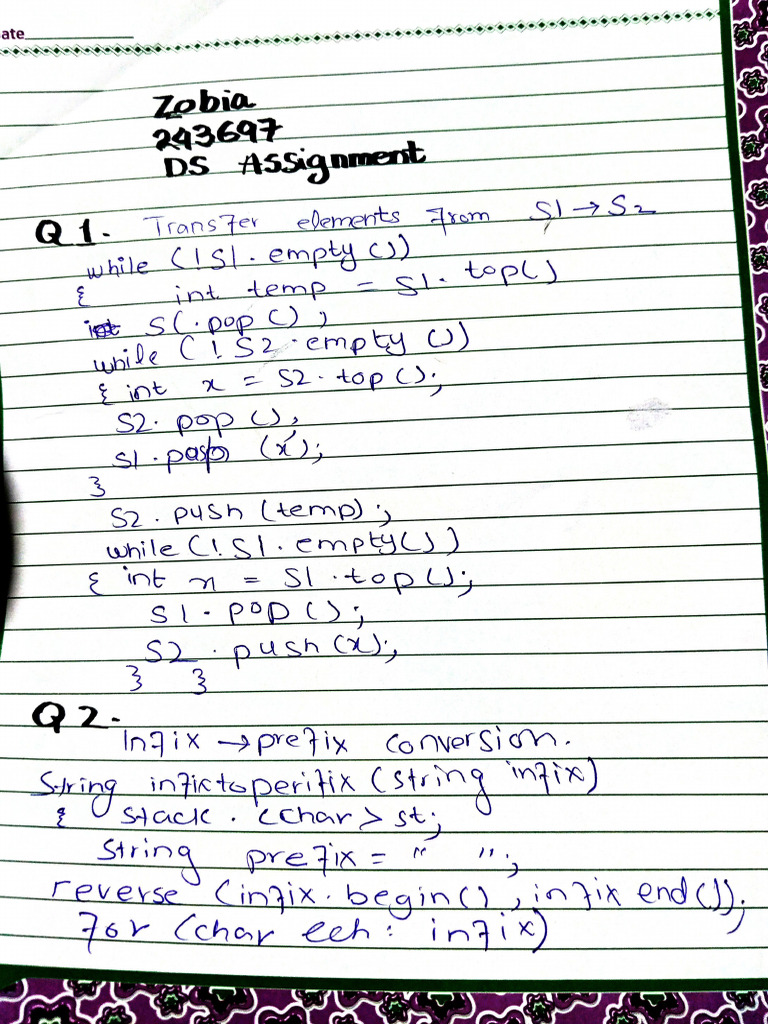 ate
Zobia
243697
DS Assignment
Q1. Transfer elements from S1 → S2
while (!S1.empty())
{ int temp = S1.top()
S1.pop();
while (!S2.empty())
{ int x = S2.top();
S2.pop();
S1. (x);
}
S2.push(temp);
while (!S1.empty())
{ int n = S1.top();
S1.pop();
S2.push(x);
} }
Q2.
Infix → prefix conversion.
String infixtoperifix (string infix)
{ stack.<char> st;
string prefix = " ";
reverse (infix.begin(), infix end());
for (char eeh: infix)